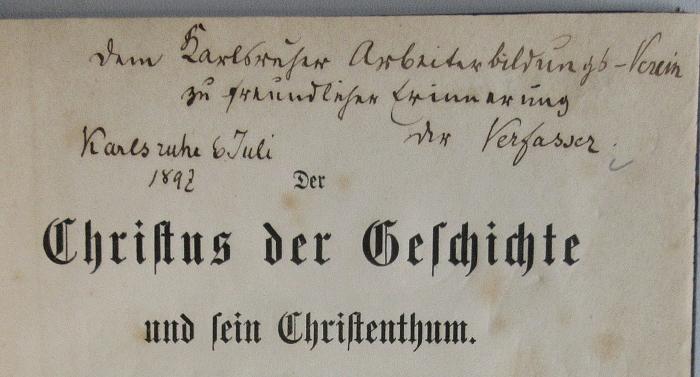 Dem Karlsruher Arbeiterbildungs-Verein
zu freundlicher Erinnerung
der Verfasser.
Karlsruhe Juli
1892
Der
Christus der Geschichte
und sein Christenthum.